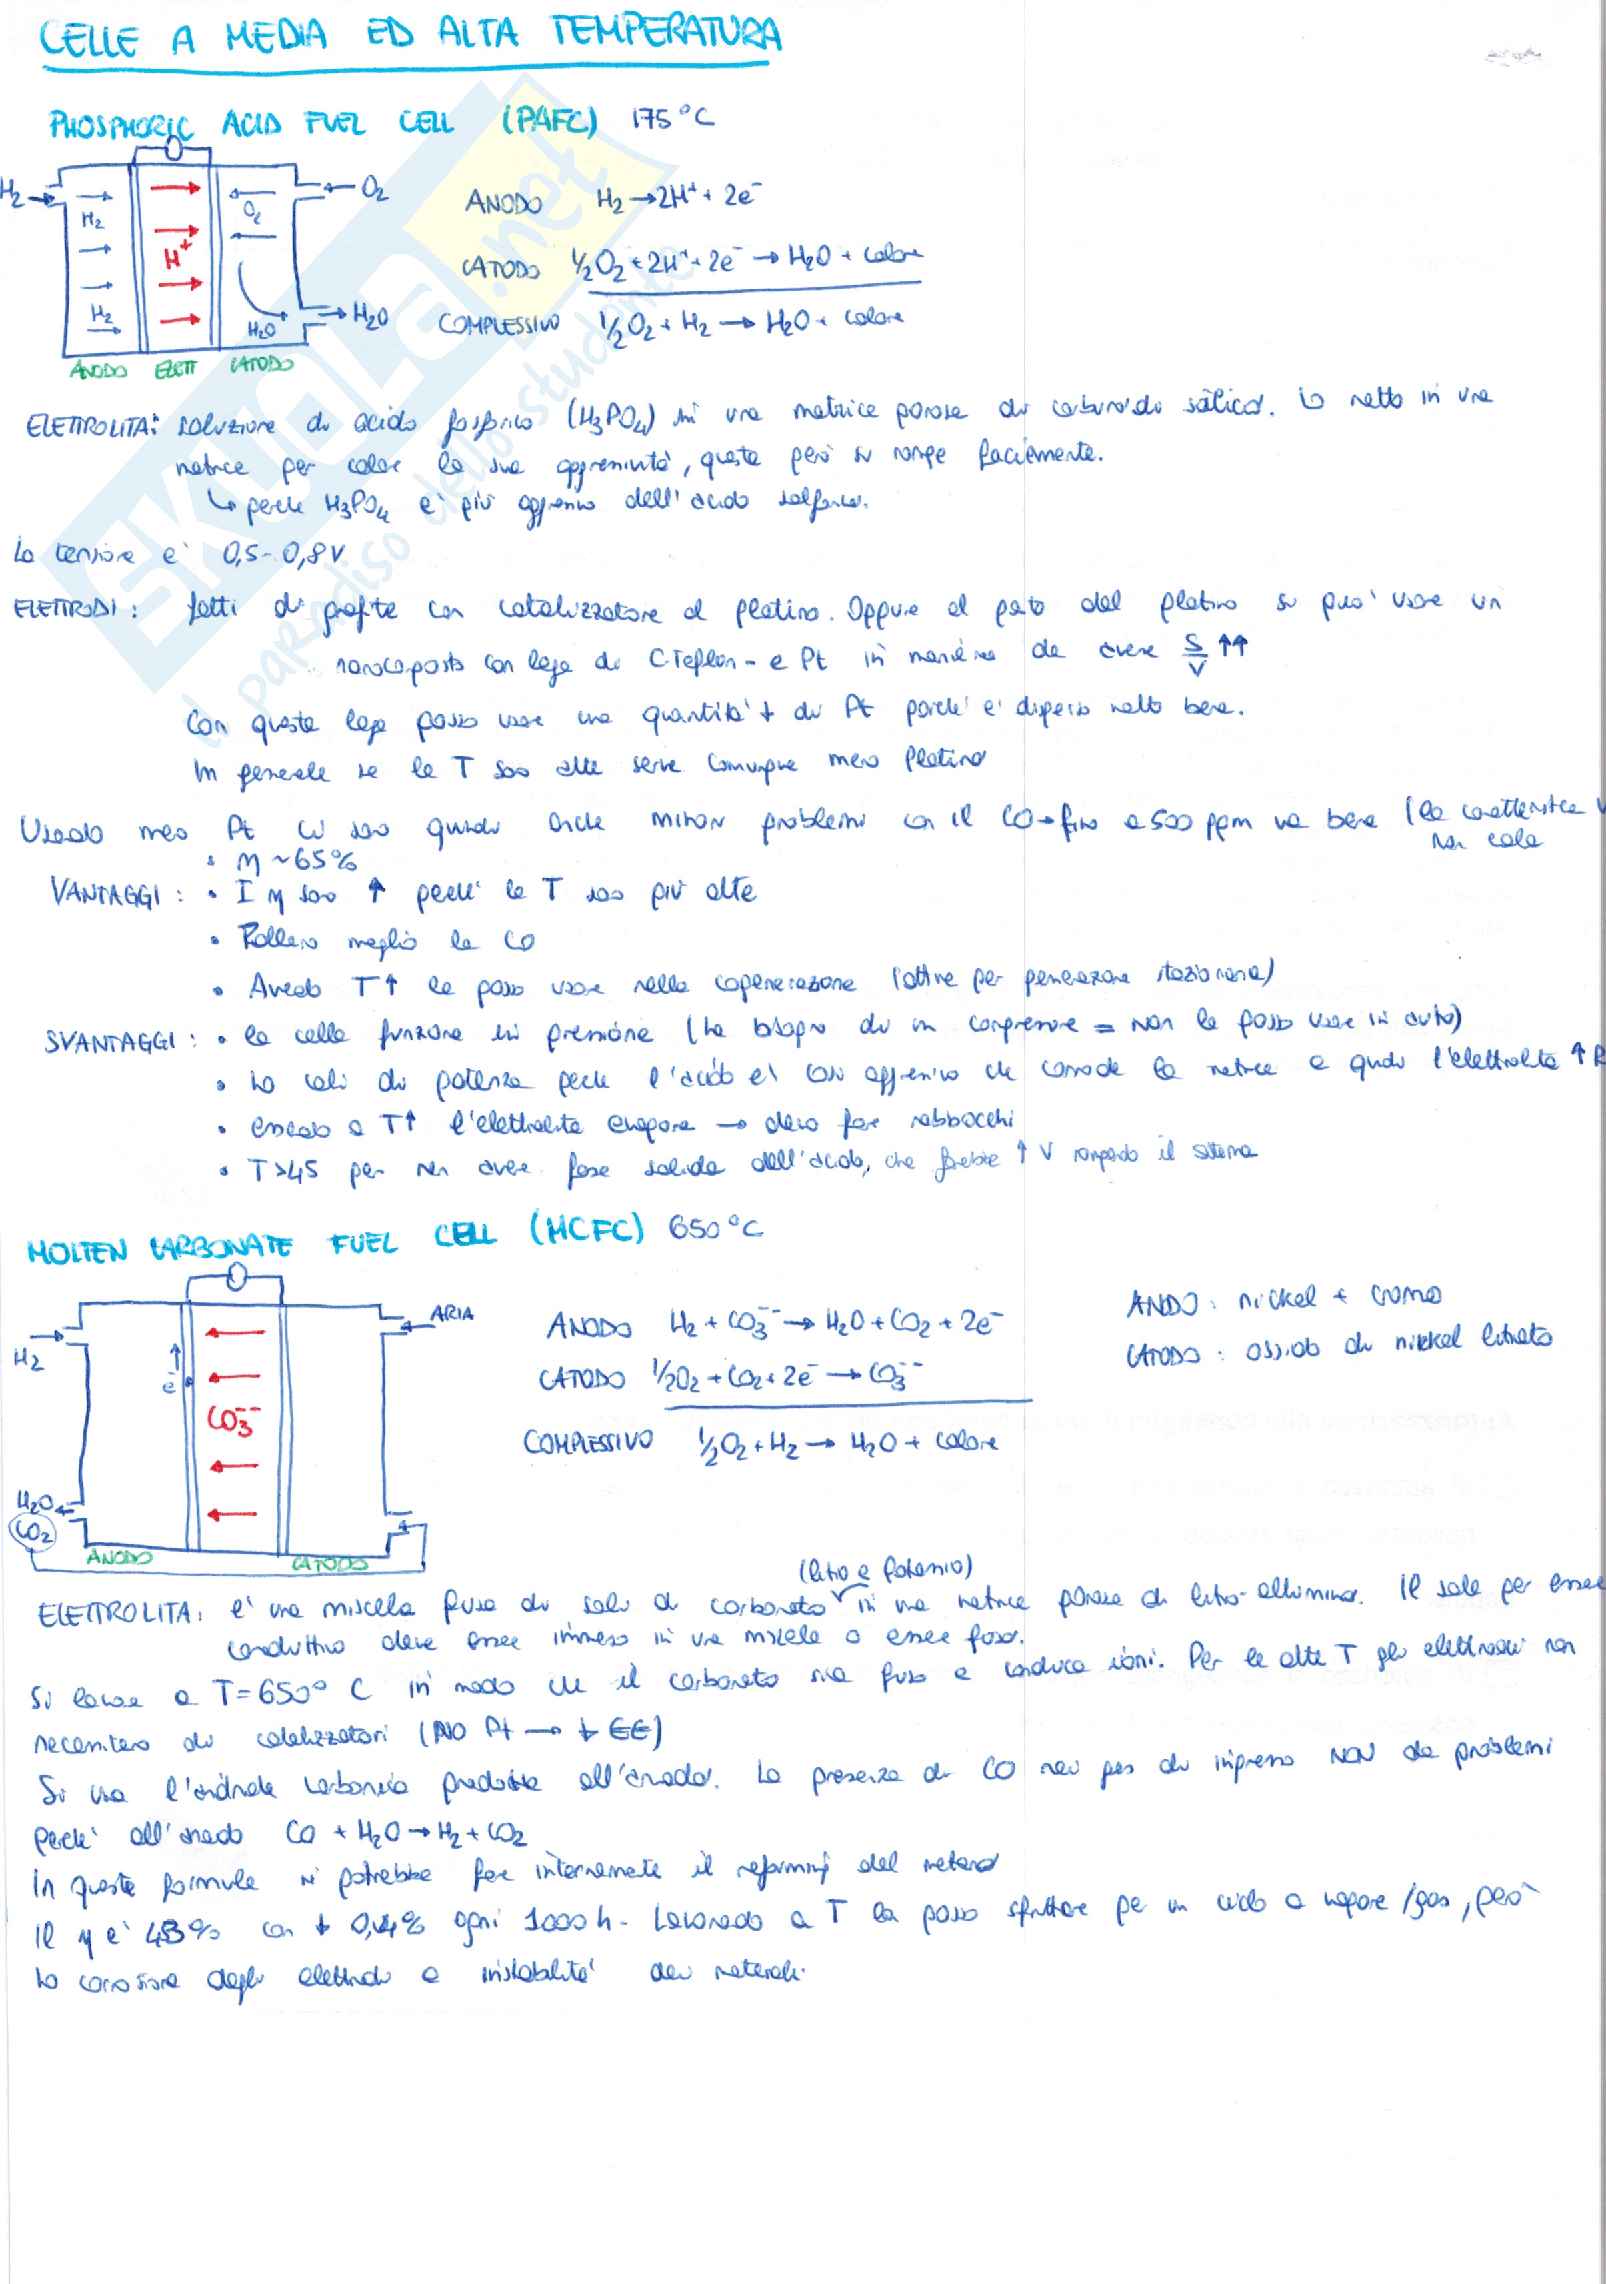 CELLE A MEDIA ED ALTA TEMPERATURA
PHOSPHORIC ACID FUEL CELL (PAFC) 175°C
H₂ → H₂ H⁺ O₂ ← O₂
ANODO H₂ → 2H⁺ + 2e⁻
CATODO ½O₂ + 2H⁺ + 2e⁻ → H₂O + calore
H₂ H₂O → H₂O
COMPLESSIVO ½O₂ + H₂ → H₂O + calore
ANODO ELETT CATODO
ELETTROLITA: soluzione di acido fosforico (H₃PO₄) in una matrice porosa di carburo di silicio. Lo metto in una
matrice per calare la sua aggressività, questa però si rompe facilmente.
↳ perchè H₃PO₄ è più aggressivo dell'acido solforico.
La tensione è 0,5-0,8 V
ELETTRODI: fatti di grafite con catalizzatore al platino. Oppure al posto del platino si può usare un
nanocomposto con lega di C-Teflon- e Pt in maniera da avere S/V ↑↑
Con questa lega posso usare una quantità ↓ di Pt perchè è disperso molto bene.
In generale se le T sono alte serve comunque meno Platino
Usando meno Pt ci sono quindi anche minori problemi con il CO → fino a 500 ppm va bene (la caratteristica V
non cala
• η ~65%
VANTAGGI: • I η sono ↑ perchè le T sono più alte
• Tollero meglio la CO
• Avendo T↑ la posso usare nella cogenerazione (ottime per generazione stazionaria)
SVANTAGGI: • la cella funziona in pressione (ha bisogno di un compressore = non la posso usare in auto)
• ho cali di potenza perchè l'acido è così aggressivo che corrode la matrice e quindi l'elettrolita ↑ R
• essendo a T↑ l'elettrolita evapora → devo fare rabbocchi
• T>45 per non avere fase solida dell'acido, che farebbe ↑ V rompendo il sistema
MOLTEN CARBONATE FUEL CELL (MCFC) 650°C
H₂ → ← ARIA
e⁻
CO₃⁻⁻
H₂O
CO₂
ANODO CATODO
ANODO H₂ + CO₃⁻⁻ → H₂O + CO₂ + 2e⁻
CATODO ½O₂ + CO₂ + 2e⁻ → CO₃⁻⁻
COMPLESSIVO ½O₂ + H₂ → H₂O + calore
ANODO: nickel + cromo
CATODO: ossido di nickel litiato
(litio e potassio)
ELETTROLITA: è una miscela fusa di sali di carbonato in una matrice porosa di litio-allumina. Il sale per essere
conduttivo deve essere immerso in una miscela o essere fuso.
Si lavora a T=650° C in modo che il carbonato sia fuso e conduca ioni. Per le alte T gli elettrodi non
necessitano di catalizzatori (NO Pt → ↓ €€)
Si usa l'anidride carbonica prodotta all'anodo. La presenza di CO nei gas di ingresso NON da problemi
perchè all'anodo CO + H₂O → H₂ + CO₂
In queste formule si potrebbe fare internamente il reforming del metano
Il η è 48% con ↓ 0,4% ogni 1000 h - Lavorando a T la posso sfruttare per un ciclo a vapore/gas, però
ho corrosione degli elettrodi e instabilità dei materiali.
SKUOLA.net
il paradiso dello studente